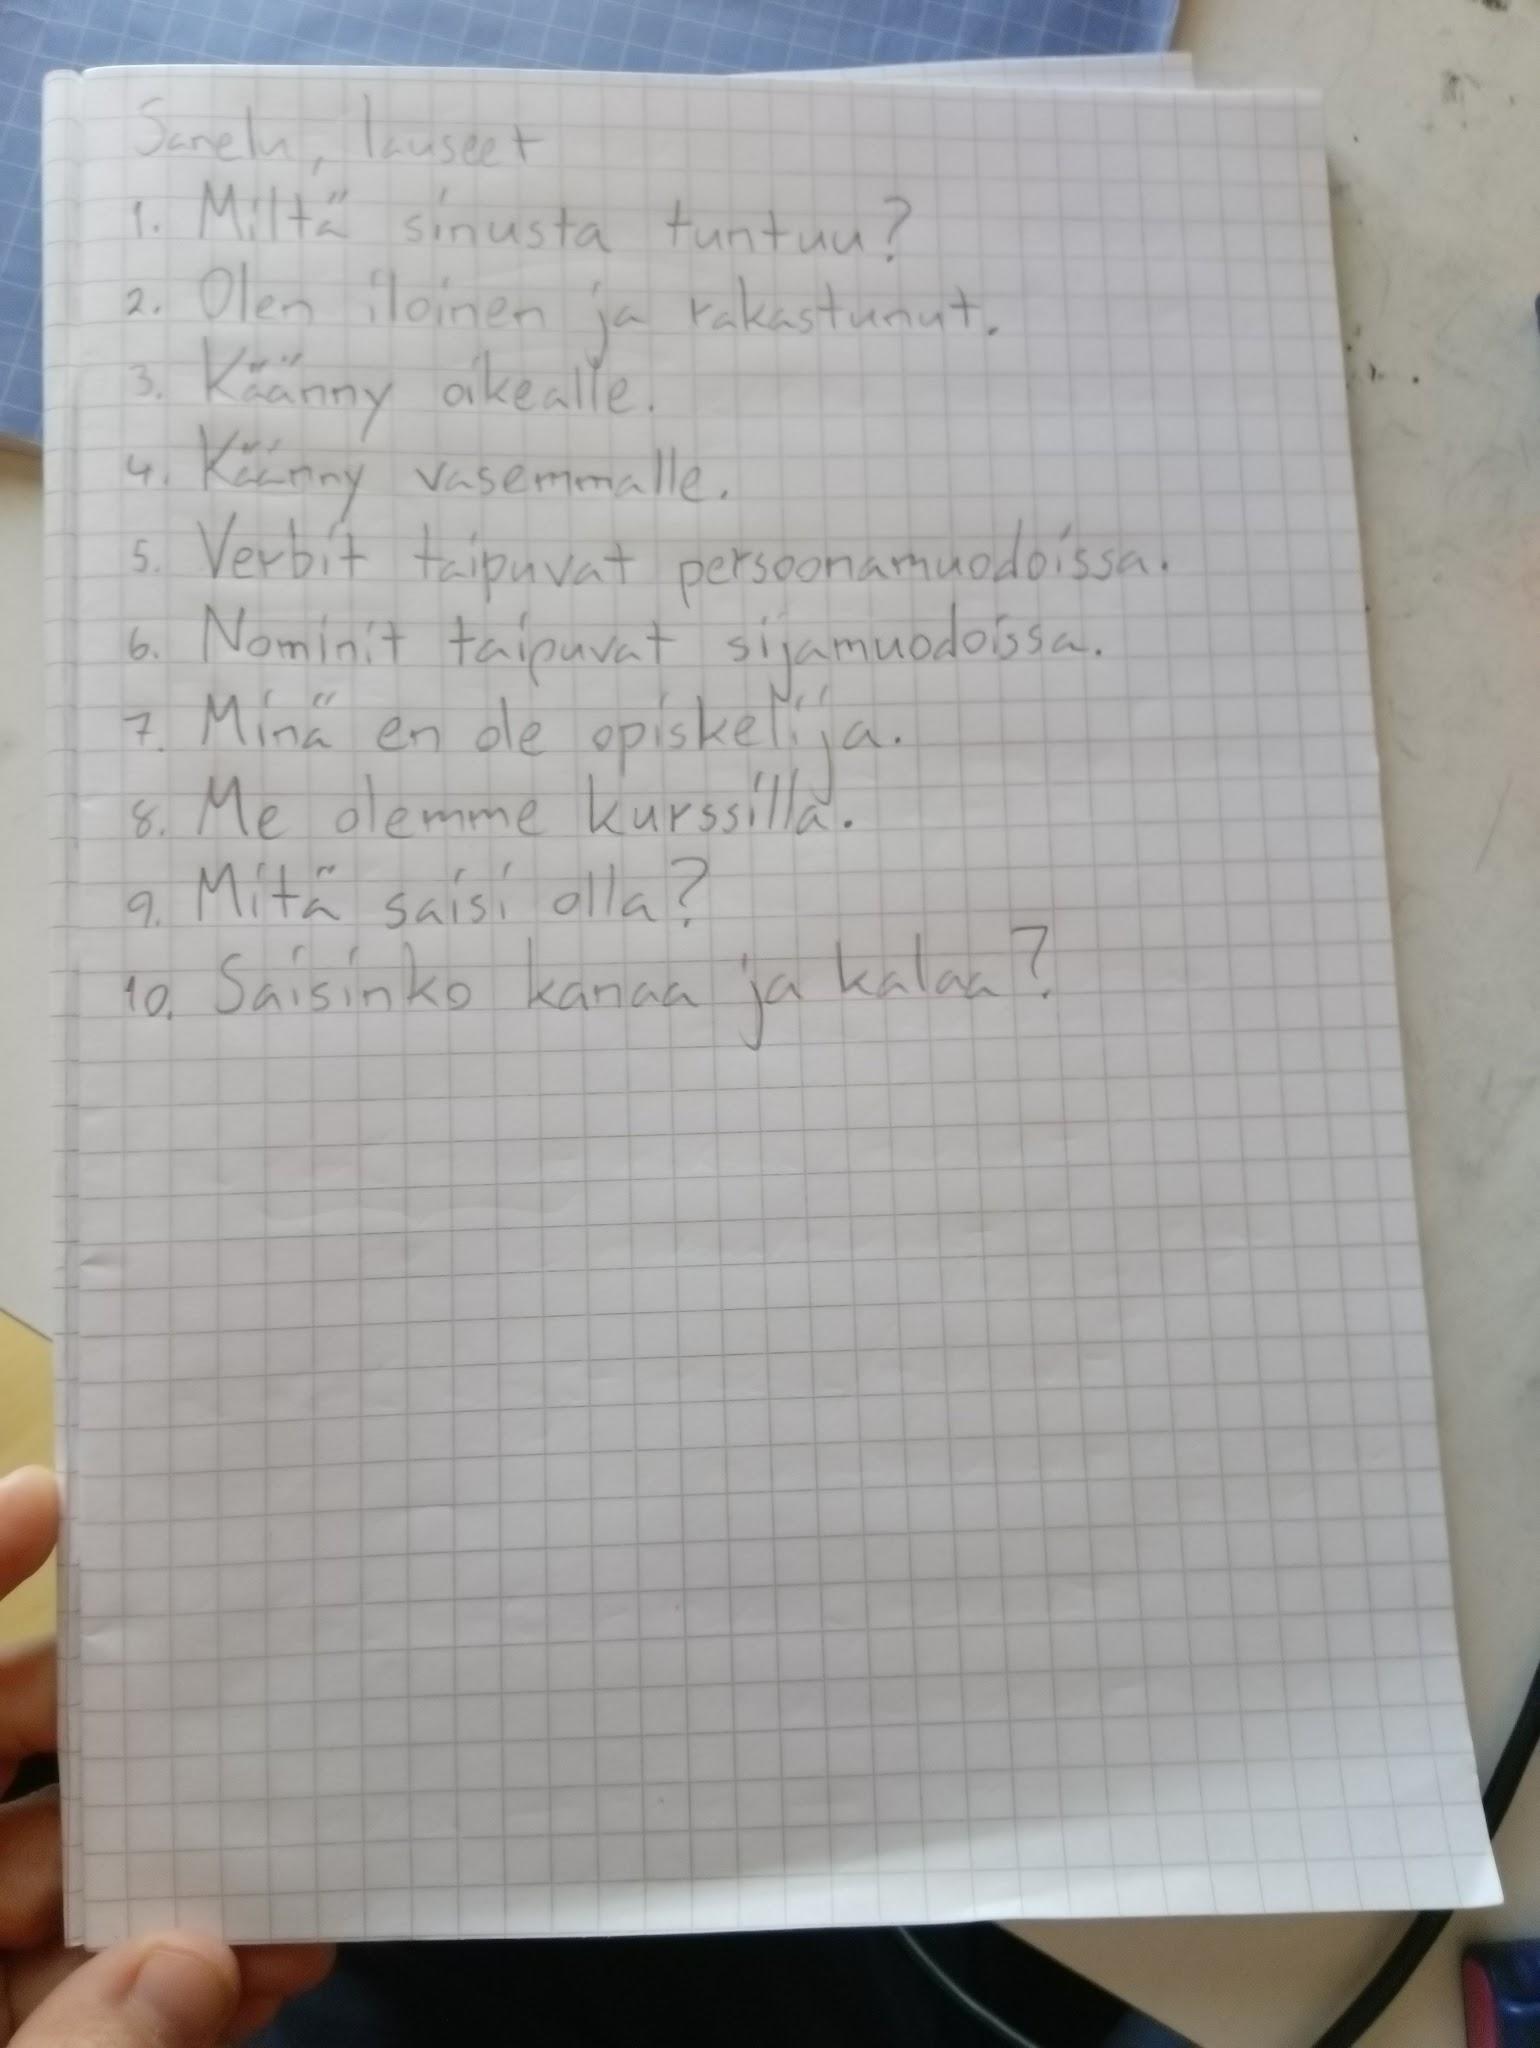 Sanelu, lauseet
1. Miltä sinusta tuntuu?
2. Olen iloinen ja rakastunut.
3. Käänny oikealle.
4. Käänny vasemmalle.
5. Verbit taipuvat persoonamuodoissa.
6. Nominit taipuvat sijamuodoissa.
7. Minä en ole opiskelija.
8. Me olemme kurssilla.
9. Mitä saisi olla?
10. Saisinko kanaa ja kalaa?